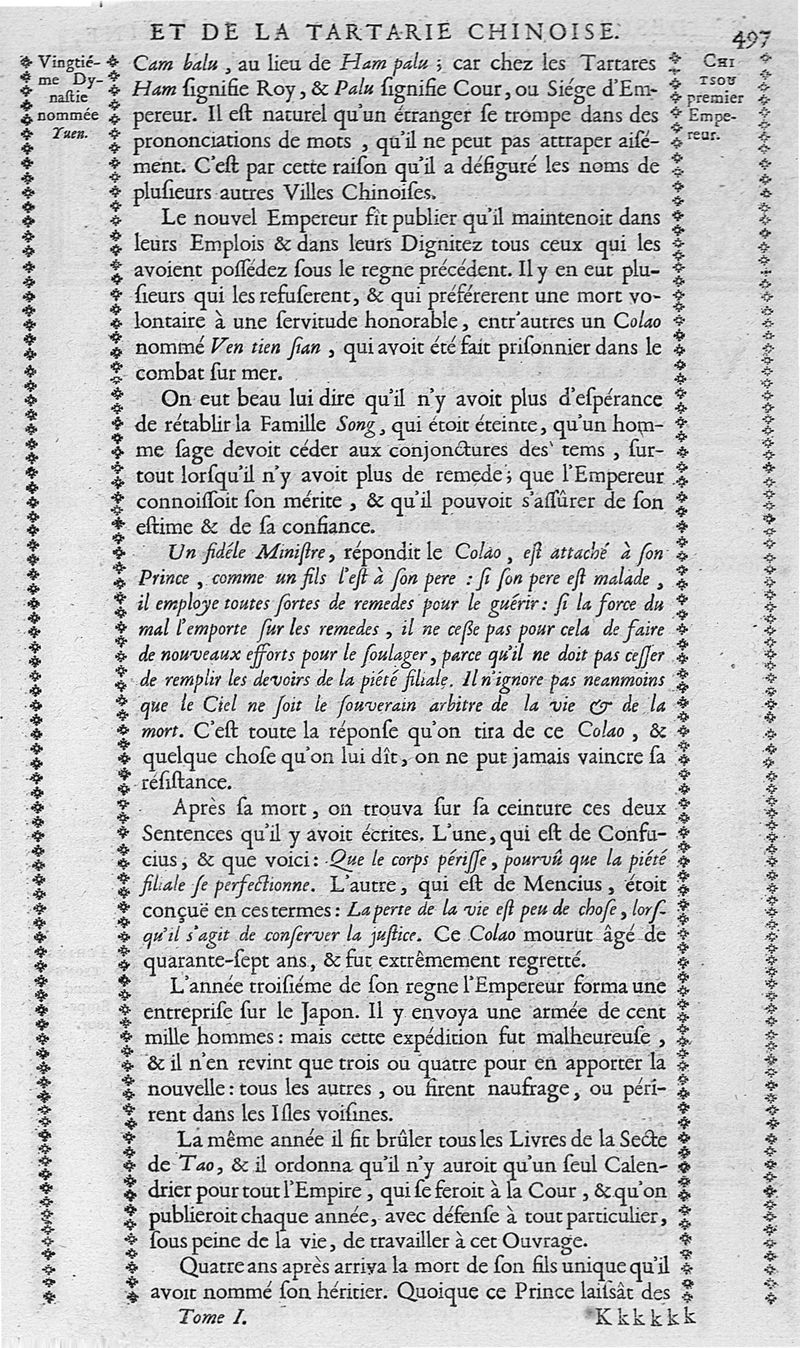 ET DE LA TARTARIE CHINOISE. 497
Vingtié-
me Dy-
naſtie
nommée
Yuen.
CHI
TSOU
premier
Empe-
reur.
Cam balu, au lieu de Ham palu; car chez les Tartares
Ham ſignifie Roy, & Palu ſignifie Cour, ou Siége d'Em-
pereur. Il eſt naturel qu'un étranger ſe trompe dans des
prononciations de mots, qu'il ne peut pas attraper aiſé-
ment. C'eſt par cette raiſon qu'il a défiguré les noms de
pluſieurs autres Villes Chinoiſes.
Le nouvel Empereur fit publier qu'il maintenoit dans
leurs Emplois & dans leurs Dignitez tous ceux qui les
avoient poſſédez ſous le regne précédent. Il y en eut plu-
ſieurs qui les refuſerent, & qui préférerent une mort vo-
lontaire à une ſervitude honorable, entr'autres un Colao
nommé Ven tien ſian, qui avoit été fait priſonnier dans le
combat ſur mer.
On eut beau lui dire qu'il n'y avoit plus d'eſpérance
de rétablir la Famille Song, qui étoit éteinte, qu'un hom-
me ſage devoit céder aux conjonctures des tems, ſur-
tout lorſqu'il n'y avoit plus de remede; que l'Empereur
connoiſſoit ſon mérite, & qu'il pouvoit s'aſſûrer de ſon
eſtime & de ſa confiance.
Un fidéle Miniſtre, répondit le Colao, eſt attaché à ſon
Prince, comme un fils l'eſt à ſon pere : ſi ſon pere eſt malade,
il employe toutes ſortes de remedes pour le guérir : ſi la force du
mal l'emporte ſur les remedes, il ne ceße pas pour cela de faire
de nouveaux efforts pour le ſoulager, parce qu'il ne doit pas ceſſer
de remplir les devoirs de la piété filiale. Il n'ignore pas neanmoins
que le Ciel ne ſoit le ſouverain arbitre de la vie & de la
mort. C'eſt toute la réponſe qu'on tira de ce Colao, &
quelque choſe qu'on lui dît, on ne put jamais vaincre ſa
réſiſtance.
Après ſa mort, on trouva ſur ſa ceinture ces deux
Sentences qu'il y avoit écrites. L'une, qui eſt de Confu-
cius, & que voici : Que le corps périſſe, pourvû que la piété
filiale ſe perfectionne. L'autre, qui eſt de Mencius, étoit
conçuë en ces termes : La perte de la vie eſt peu de choſe, lorſ-
qu'il s'agit de conſerver la juſtice. Ce Colao mourut âgé de
quarante-ſept ans, & fut extrêmement regretté.
L'année troiſiéme de ſon regne l'Empereur forma une
entrepriſe ſur le Japon. Il y envoya une armée de cent
mille hommes : mais cette expédition fut malheureuſe,
& il n'en revint que trois ou quatre pour en apporter la
nouvelle : tous les autres, ou firent naufrage, ou péri-
rent dans les Iſles voiſines.
La même année il fit brûler tous les Livres de la Secte
de Tao, & il ordonna qu'il n'y auroit qu'un ſeul Calen-
drier pour tout l'Empire, qui ſe feroit à la Cour, & qu'on
publieroit chaque année, avec défenſe à tout particulier,
ſous peine de la vie, de travailler à cet Ouvrage.
Quatre ans après arriva la mort de ſon fils unique qu'il
avoit nommé ſon héritier. Quoique ce Prince laiſsât des
Tome I. Kkkkkk